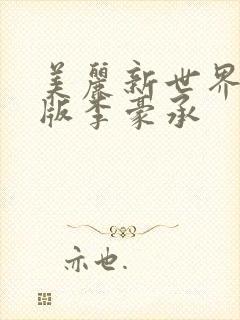 美麗新世界
版李豪承
亦也.